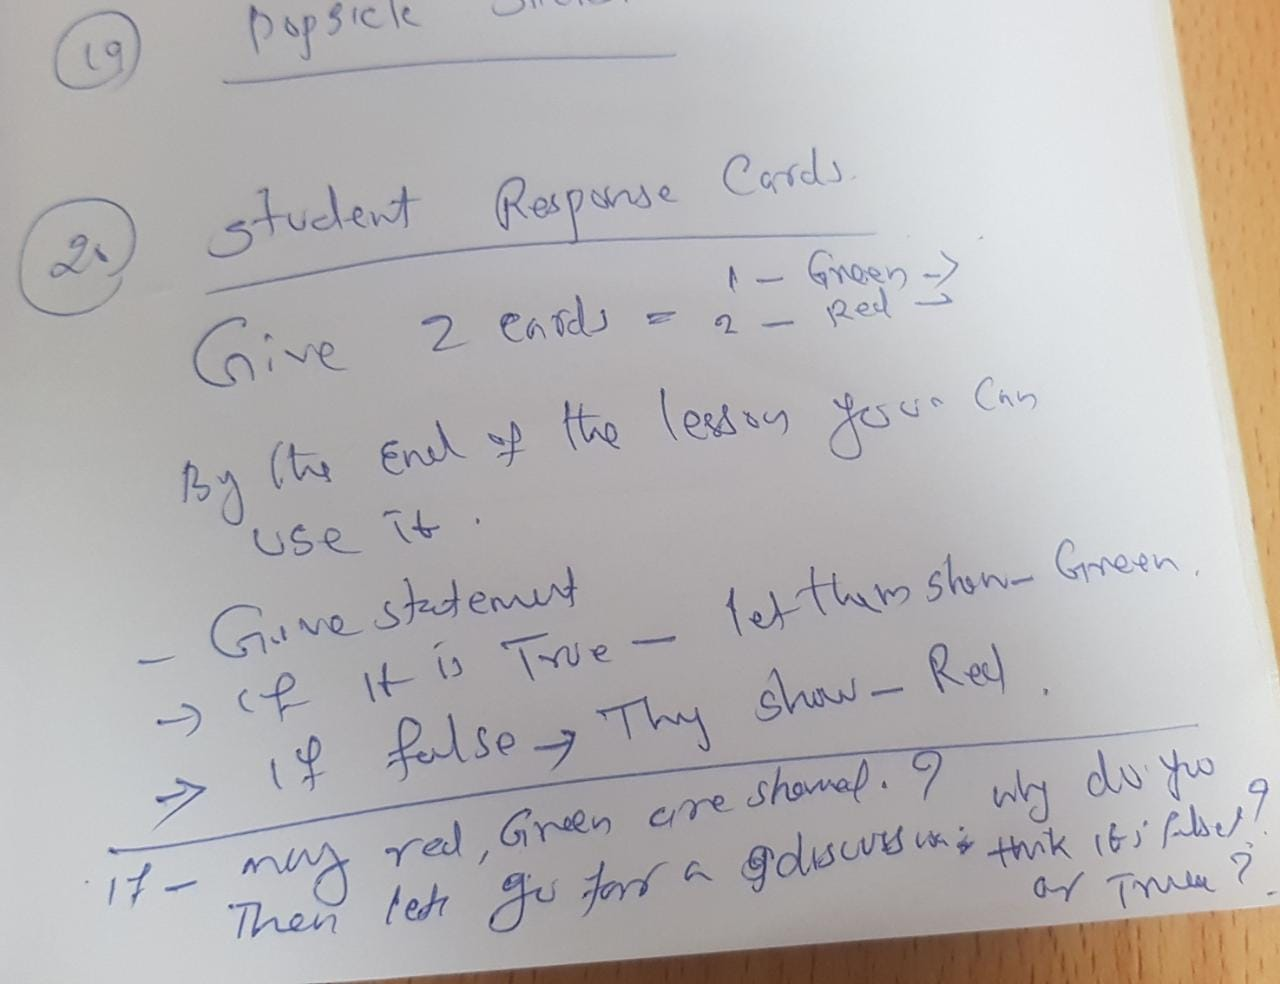 19 Popsicle
20 Student Response Cards.
Give 2 cards = 1 - Green →
2 - Red →
By the End of the lesson you can
use it.
- Give statement
→ if it is True - let them show - Green.
→ if false → They show - Red.
if - many red, Green are showed. ? why do you
Then lets go for a discussion: think its false?
or True?